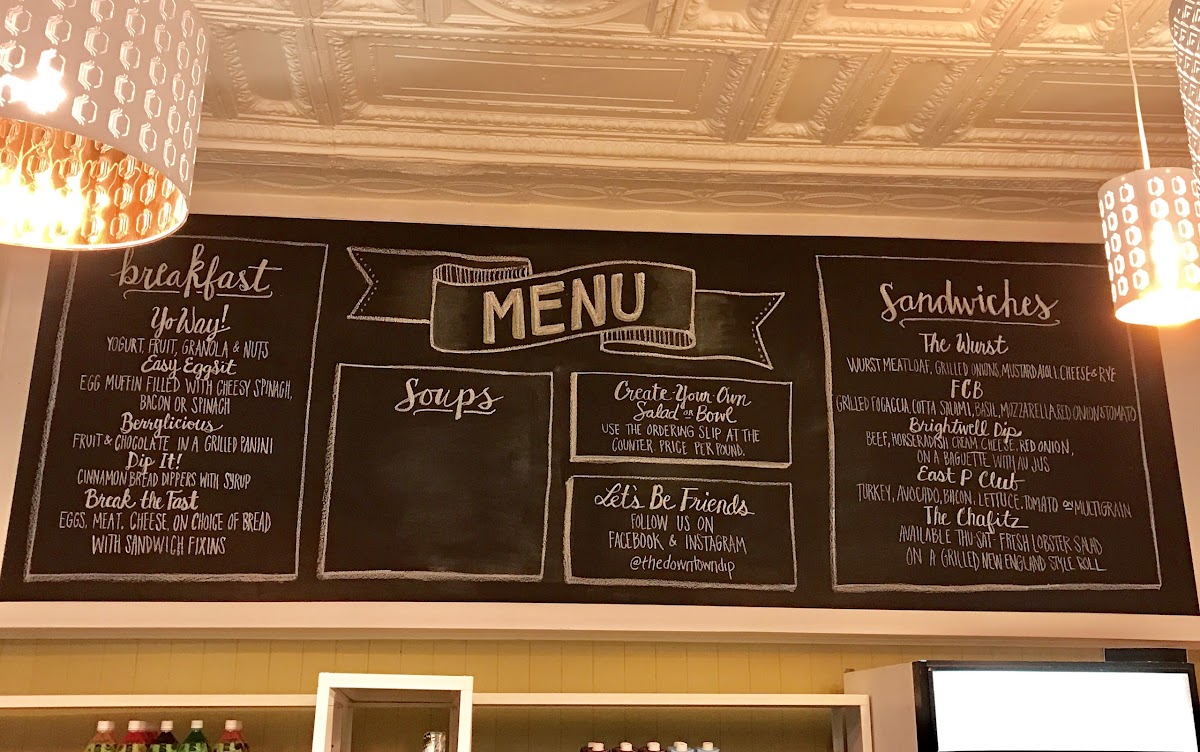 breakfast
Yo Way!
YOGURT, FRUIT, GRANOLA & NUTS
Easy Eggsit
EGG MUFFIN FILLED WITH CHEESY SPINAGH,
BACON OR SPINACH
Berrylicious
FRUIT & CHOCOLATE IN A GRILLED PANINI
Dip It!
CINNAMON BREAD DIPPERS WITH SYRUP
Break the Fast
EGGS, MEAT, CHEESE, ON CHOICE OF BREAD
WITH SANDWICH FIXINS
MENU
Soups
Create Your Own
Salad or Bowl
USE THE ORDERING SLIP AT THE
COUNTER. PRICE PER POUND.
Let's Be Friends
FOLLOW US ON
FACEBOOK & INSTAGRAM
@thedowntowndip
Sandwiches
The Wurst
WURST MEATLOAF, GRILLED ONIONS, MUSTARD AIOLI, CHEESE & RYE
FCB
GRILLED FOGACCIA, COTTA SALAMI, BASIL, MOZZARELLA, RED ONION & TOMATO
Brightwell Dip
BEEF, HORSERADISH CREAM CHEESE, RED ONION,
ON A BAGUETTE WITH AU JUS
East P Club
TURKEY, AVOCADO, BACON, LETTUCE, TOMATO on MULTIGRAIN
The Chafitz
AVAILABLE THU-SAT FRESH LOBSTER SALAD
ON A GRILLED NEW ENGLAND STYLE ROLL